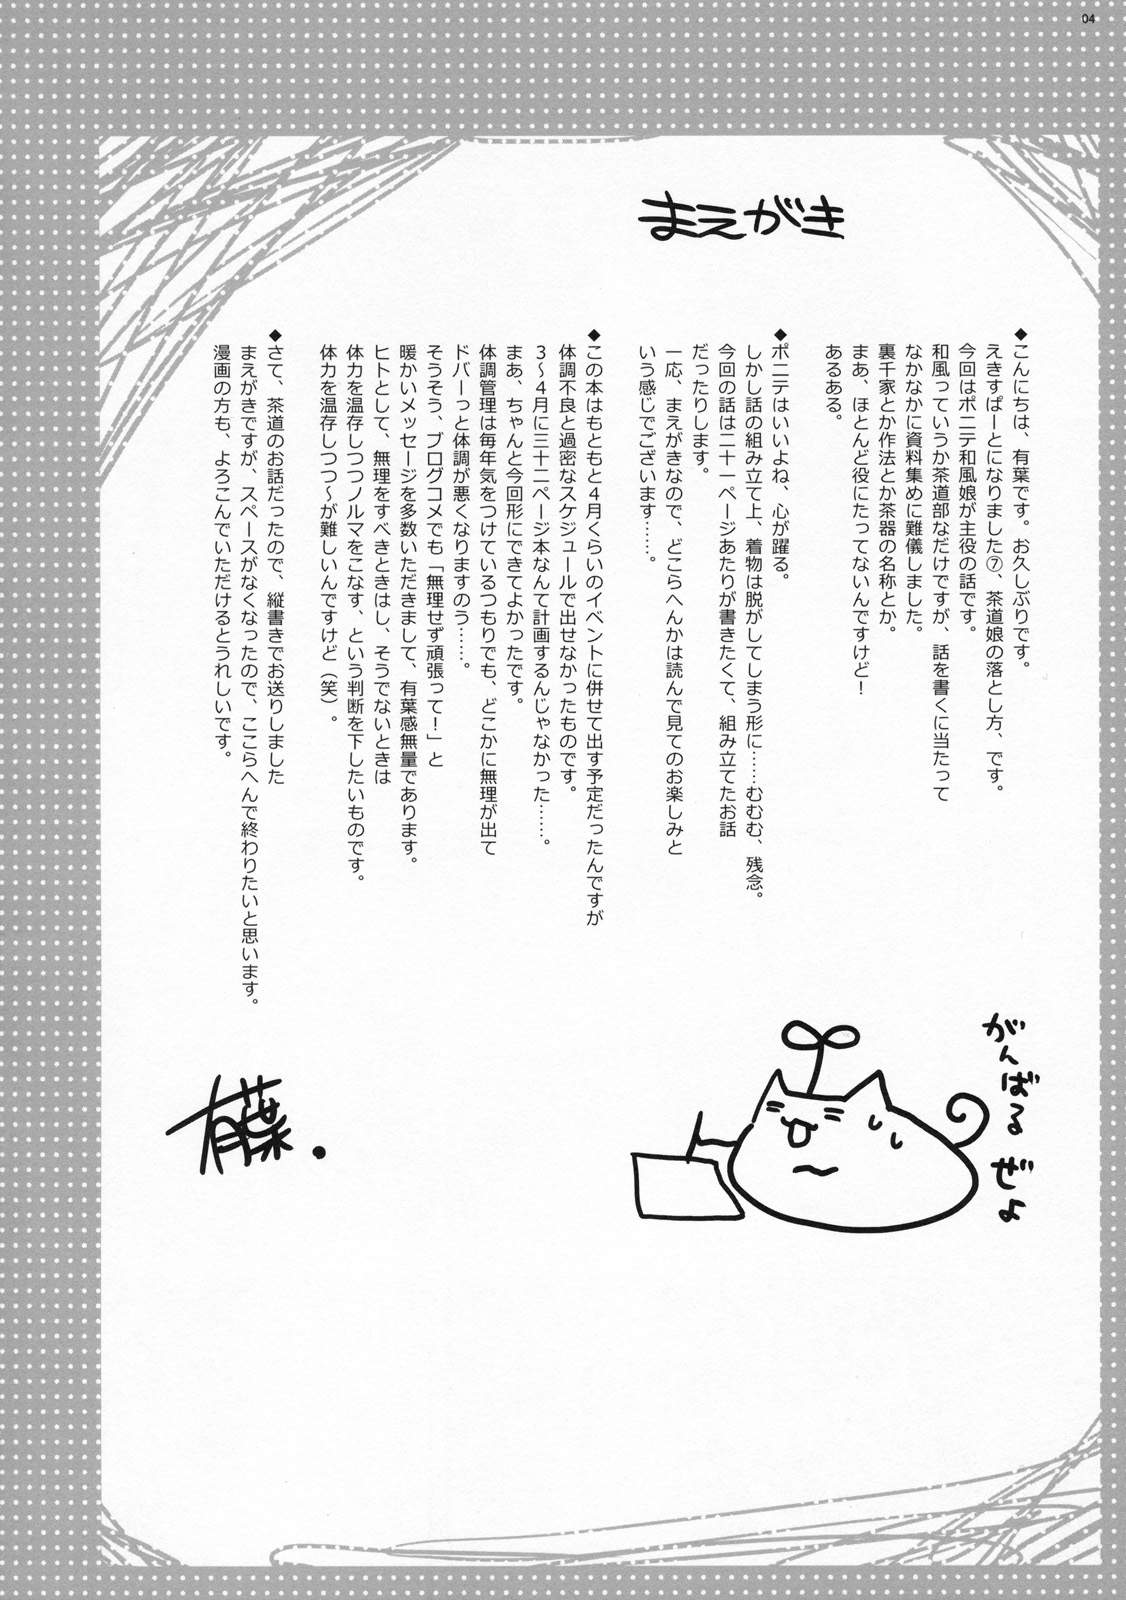 04
まえがき
◆こんにちは、有葉です。お久しぶりです。
えきすぱーとになりました⑦、茶道娘の落とし方、です。
今回はポニテ和風娘が主役の話です。
和風っていうか茶道部なだけですが、話を書くに当たって
なかなかに資料集めに難儀しました。
裏千家とか作法とか茶器の名称とか。
まあ、ほとんど役にたってないんですけど!
あるある。
◆ポニテはいいよね、心が躍る。
しかし話の組み立て上、着物は脱がしてしまう形に……むむむ、残念。
今回の話は二十一ページあたりが書きたくて、組み立てたお話
だったりします。
一応、まえがきなので、どこらへんかは読んで見てのお楽しみと
いう感じでございます……。
◆この本はもともと4月くらいのイベントに併せて出す予定だったんですが
体調不良と過密なスケジュールで出せなかったものです。
3〜4月に三十二ページ本なんて計画するんじゃなかった……。
まあ、ちゃんと今回形にできてよかったです。
体調管理は毎年気をつけているつもりでも、どこかに無理が出て
ドバーっと体調が悪くなりますのう……。
そうそう、ブログコメでも「無理せず頑張って!」と
暖かいメッセージを多数いただきまして、有葉感無量であります。
ヒトとして、無理をすべきときはし、そうでないときは
体力を温存しつつノルマをこなす、という判断を下したいものです。
体力を温存しつつ〜が難しいんですけど(笑)。
◆さて、茶道のお話だったので、縦書きでお送りしました
まえがきですが、スペースがなくなったので、ここらへんで終わりたいと思います。
漫画の方も、よろこんでいただけるとうれしいです。
がんばるぜよ
有葉.